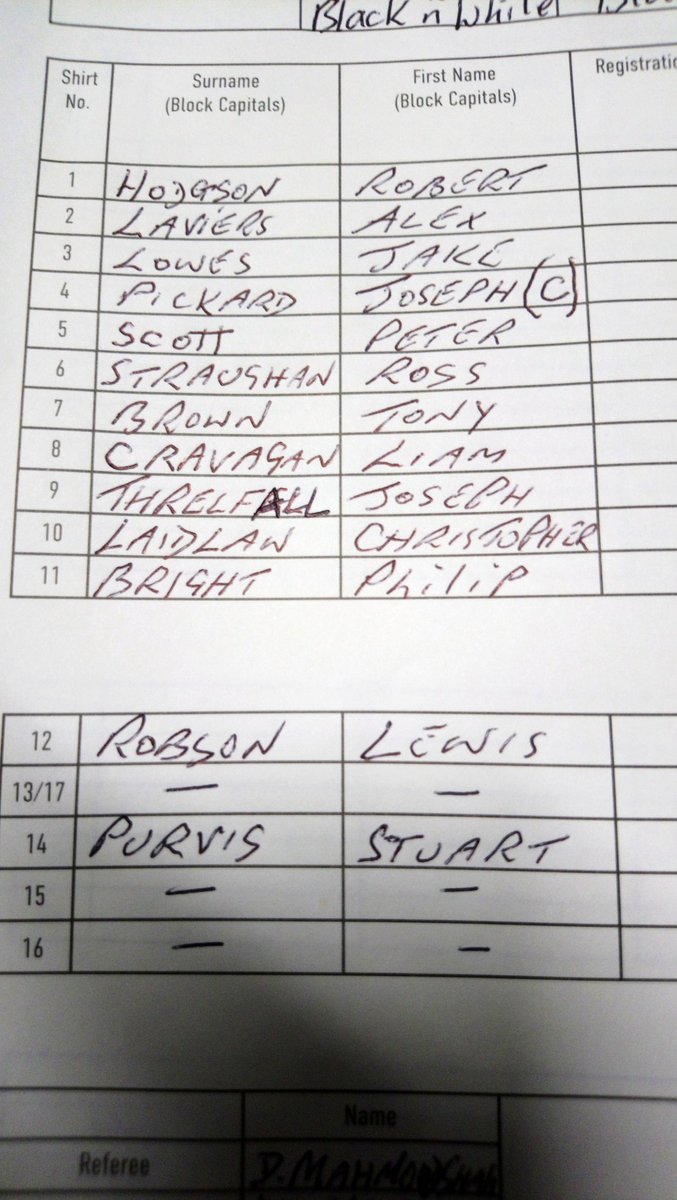 Black n White
Shirt No. Surname (Block Capitals) First Name (Block Capitals) Registratio
1 HODGSON ROBERT
2 LAVIERS ALEX
3 LOWES JAKE
4 PICKARD JOSEPH (C)
5 SCOTT PETER
6 STRAUGHAN ROSS
7 BROWN TONY
8 CRAVAGAN LIAM
9 THRELFALL JOSEPH
10 LAIDLAW CHRISTOPHER
11 BRIGHT Philip
12 ROBSON LEWIS
13/17 — —
14 PURVIS STUART
15 — —
16 — —
Name
Referee D. MAHMOOD